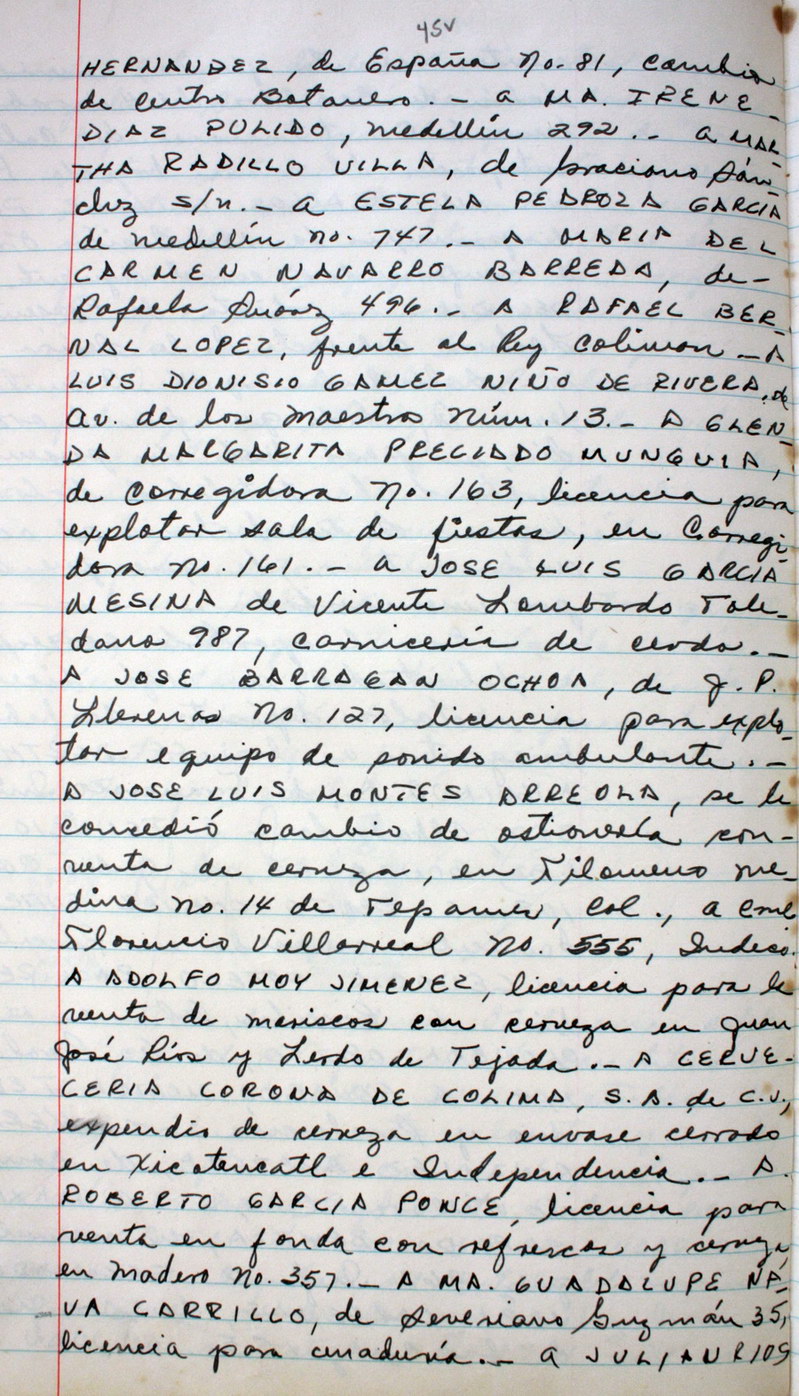 45v
HERNANDEZ, de España No. 81, cambio
de Centro Botanero. - a MA. IRENE -
DIAZ PULIDO, Medellín 292. - a MAR-
THA RADILLO VILLA, de Graciano Sán-
chez s/n. - a ESTELA PEDROZA GARCIA
de Medellín No. 747. - A MARIA DEL
CARMEN NAVARRO BARREDA, de -
Rafaela Suárez 496. - A RAFAEL BER-
NAL LOPEZ, frente al Rey Coliman - A
LUIS DIONISIO GAMEZ NIÑO DE RIVERA, de
Av. de los Maestros Núm. 13. - A GLEN-
DA MARGARITA PRECIADO MUNGUIA,
de Corregidora No. 163, licencia para
explotar sala de fiestas, en Corregi-
dora No. 161. - a JOSE LUIS GARCIA
MESINA de Vicente Lombardo Tole-
dano 987, carnicería de cerdo. -
A JOSE BARRAGAN OCHOA, de J. P.
Llerenas No. 127, licencia para explo-
tar equipo de sonido ambulante. -
A JOSE LUIS MONTES ARREOLA, se le
concedió cambio de ostionería con -
venta de cerveza, en Filomeno Me-
dina No. 14 de Tepames, Col., a
Florencio Villarreal No. 555, Indeco.
A ADOLFO MOY JIMENEZ, licencia para la
venta de mariscos con cerveza en Juan
José Ríos y Lerdo de Tejada. - A CERVE-
CERIA CORONA DE COLIMA, S.A. de C.V.,
expendio de cerveza en envase cerrado
en Xicotencatl e Independencia. - A
ROBERTO GARCIA PONCE, licencia para
venta en fonda con refrescos y cerveza,
en Madero No. 357. - A MA. GUADALUPE NA-
VA CARRILLO, de Severiano Guzmán 35,
licencia para cenaduría. - a JULIAN RIOS